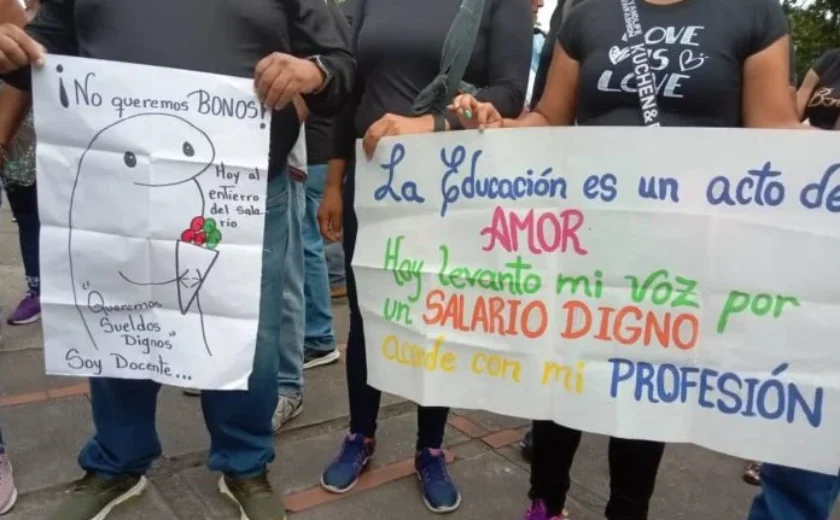 ¡No queremos BONOS!
Hoy al
entierro
del sala
rio
"Queremos
Sueldos
Dignos"
Soy Docente...
La Educación es un acto de
AMOR
Hoy levanto mi voz por
un SALARIO DIGNO
acorde con mi PROFESIÓN
LOVE
LOVE
KÜCHEN&